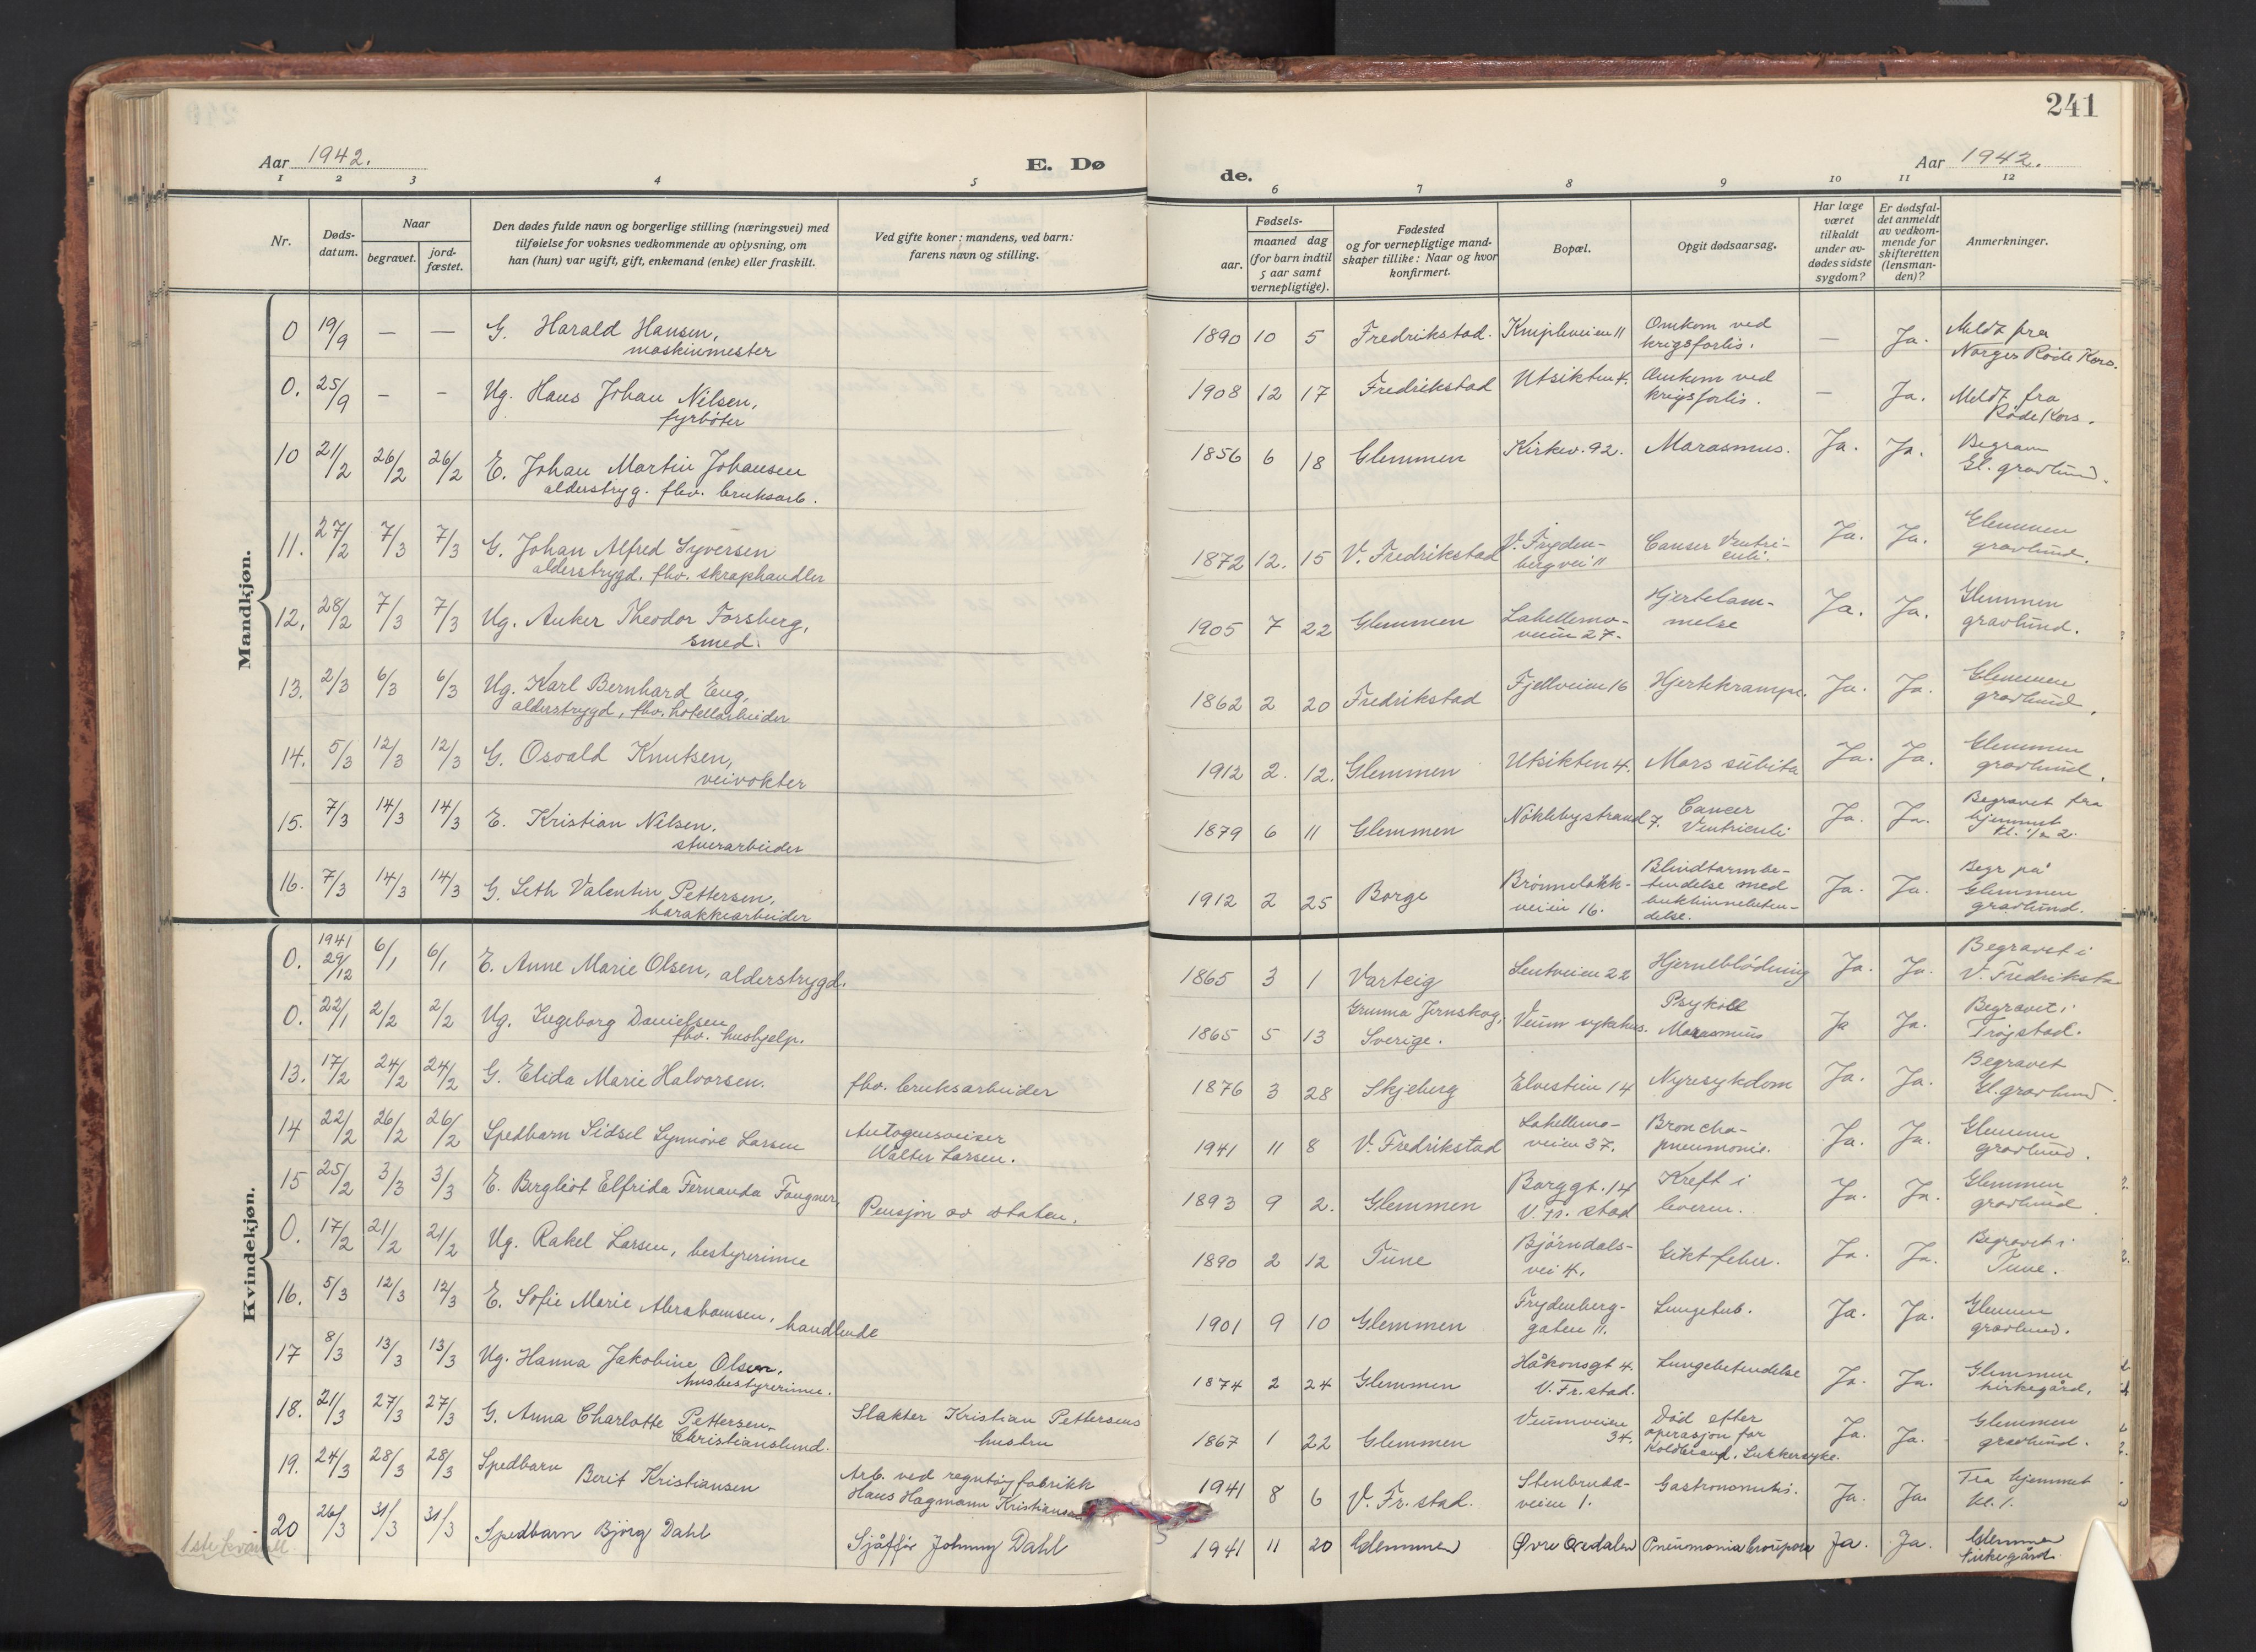 241
Aar 1942.
E. Dø
de.
Aar 1942.
1 2 3 4 5 6 7 8 9 10 11 12
Nr.
Døds-
datum.
Naar
begravet.
jord-
fæstet.
Den dødes fulde navn og borgerlige stilling (næringsvei) med
tilføielse for voksnes vedkommende av oplysning, om
han (hun) var ugift, gift, enkemand (enke) eller fraskilt.
Ved gifte koner: mandens, ved barn:
farens navn og stilling.
Fødsels-
aar.
maaned dag
(for barn indtil
5 aar samt
vernepligtige).
Fødested
og for vernepligtige mand-
skaper tillike: Naar og hvor
konfirmert.
Bopæl.
Opgit dødsaarsag.
Har læge
været
tilkaldt
under av-
dødes sidste
sygdom?
Er dødsfal-
det anmeldt
av vedkom-
mende for
skifteretten
(lensman-
den)?
Anmerkninger.
Mandkjøn.
0 19/9 — — G. Harald Hansen,
maskinmester
1890 10 5 Fredrikstad. Knipleveien 11 Omkom ved
krigsforlis. — Ja. Meldt fra
Norges Røde Kors.
0. 25/9 - - Ug. Hans Johan Nilsen,
fyrbøter
1908 12 17 Fredrikstad Utsikten 4. Omkom ved
krigsforlis. — Ja. Meldt fra
Røde Kors.
10 21/2 26/2 26/2 E. Johan Martin Johansen
alderstryg. fhv. bruksarb.
1856 6 18 Glemmen Kirkev. 92. Marasmus. Ja. Ja. Begravn
Gl. gravlund.
11. 27/2 7/3 7/3 G. Johan Alfred Syversen
alderstrygd. fhv. skraphandler
1872 12. 15 V. Fredrikstad V. Fryden-
bergvei 11 Canser Ventri-
culi. Ja. Ja. Glemmen
gravlund.
12. 28/2 7/3 7/3 Ug. Anker Theodor Forsberg,
smed.
1905 7 22 Glemmen Labellemo-
veien 27. Hjertelam-
melse Ja. Ja. Glemmen
gravlund.
13. 2/3 6/3 6/3 Ug. Karl Bernhard Eng,
alderstrygd, fhv. hotellarbeider
1862 2 20 Fredrikstad Fjellveien 16 Hjertekrampe. Ja. Ja. Glemmen
gravlund.
14. 5/3 12/3 12/3 G. Osvald Knutsen,
veivokter
1912 2. 12. Glemmen Utsikten 4. Mors subita Ja. Ja. Glemmen
gravlund.
15. 7/3 14/3 14/3 E. Kristian Nilsen,
stuerarbeider
1879 6 11 Glemmen Nøklebystrand 7. Cancer
Ventriculi Ja. Ja. Begravet fra
hjemmet
kl. 1/2 2.
16. 7/3 14/3 14/3 G. Seth Valentin Pettersen,
barakkearbeider
1912 2 25 Borge Brønneløkk-
veien 16. Blindtarmbe-
tendelse med
bukhinnebeten-
delse. Ja. Ja. Begr på
Glemmen
gravlund.
Kvindekjøn.
0. 1941
29/12 6/1 6/1 E. Anne Marie Olsen, alderstrygd.
1865 3 1 Varteig Lentveien 22 Hjerneblødning Ja. Ja. Begravet i
V. Fredriksta
0. 22/1 2/2 2/2 Ug. Ingeborg Danielsen
fhv. hushjelp.
1865 5 13 Gunna Jernskog,
Sverige. Veum sykehus. Psykose
Marasmus Ja Ja. Begravet i
Trøgstad.
13. 17/2 24/2 24/2 G. Elida Marie Halvorsen. fhv. bruksarbeider
1876 3 28 Skjeberg Elvestien 14 Nyresykdom Ja. Ja. Begravet
Gl. gravlund.
14 22/2 26/2 26/2 Spedbarn Sidsel Synnøve Larsen Autogensveiser
Walter Larsen.
1941 11 8 V. Fredrikstad Labellemo-
veien 37. Broncho-
pneumonie. Ja. Ja. Glemmen
gravlund.
15 25/2 3/3 3/3 E. Bergliot Elfrida Fernanda Fougner, Pensjon av staten.
1893 9 2. Glemmen Borggt. 14
V. Fr. stad Kreft i
leveren. Ja. Ja. Glemmen
gravlund.
0. 17/2 21/2 21/2 Ug. Rakel Larsen, bestyrerinne
1890 2 12 Tune Bjørndals-
vei 4. Giktfeber. Ja. Ja. Begravet i
Tune.
16. 5/3 12/3 12/3 E. Sofie Marie Abrahamsen, handlende
1901 9 10 Glemmen Frydenberg-
gaten 11. Lungetub. Ja. Ja. Glemmen
gravlund.
17 8/3 13/3 13/3 Ug. Hanna Jakobine Olsen,
husbestyrerinne.
1874 2 24 Glemmen Håkonsgt 4.
V. Fr. stad. Lungebetendelse Ja. Ja. Glemmen
kirkegård.
18. 21/3 27/3 27/3 G. Anna Charlotte Pettersen,
Christianslund. Slakter Kristian Pettersens
hustru
1867 1 22 Glemmen Veumveien
34. Død efter
operasjon for
Koldbrand, Sukkersyke. Ja. Ja. Glemmen
gravlund.
19. 24/3 28/3 28/3 Spedbarn
Berit Kristiansen Arb. ved regntøyfabrikk
Hans Hagmann Kristiansen
1941 8 6 V. Fr. stad. Stenbrudd-
veien 1. Ja. Ja. Fra hjemmet
kl. 1.
20 26/3 31/3 31/3 Spedbarn Bjørg Dahl Sjåffør Johnny Dahl
1941 11 20 Glemmen Øvre Ordalen Pneumonia Crouposa Ja. Ja. Glemmen
kirkegård.
1ste kvartall.